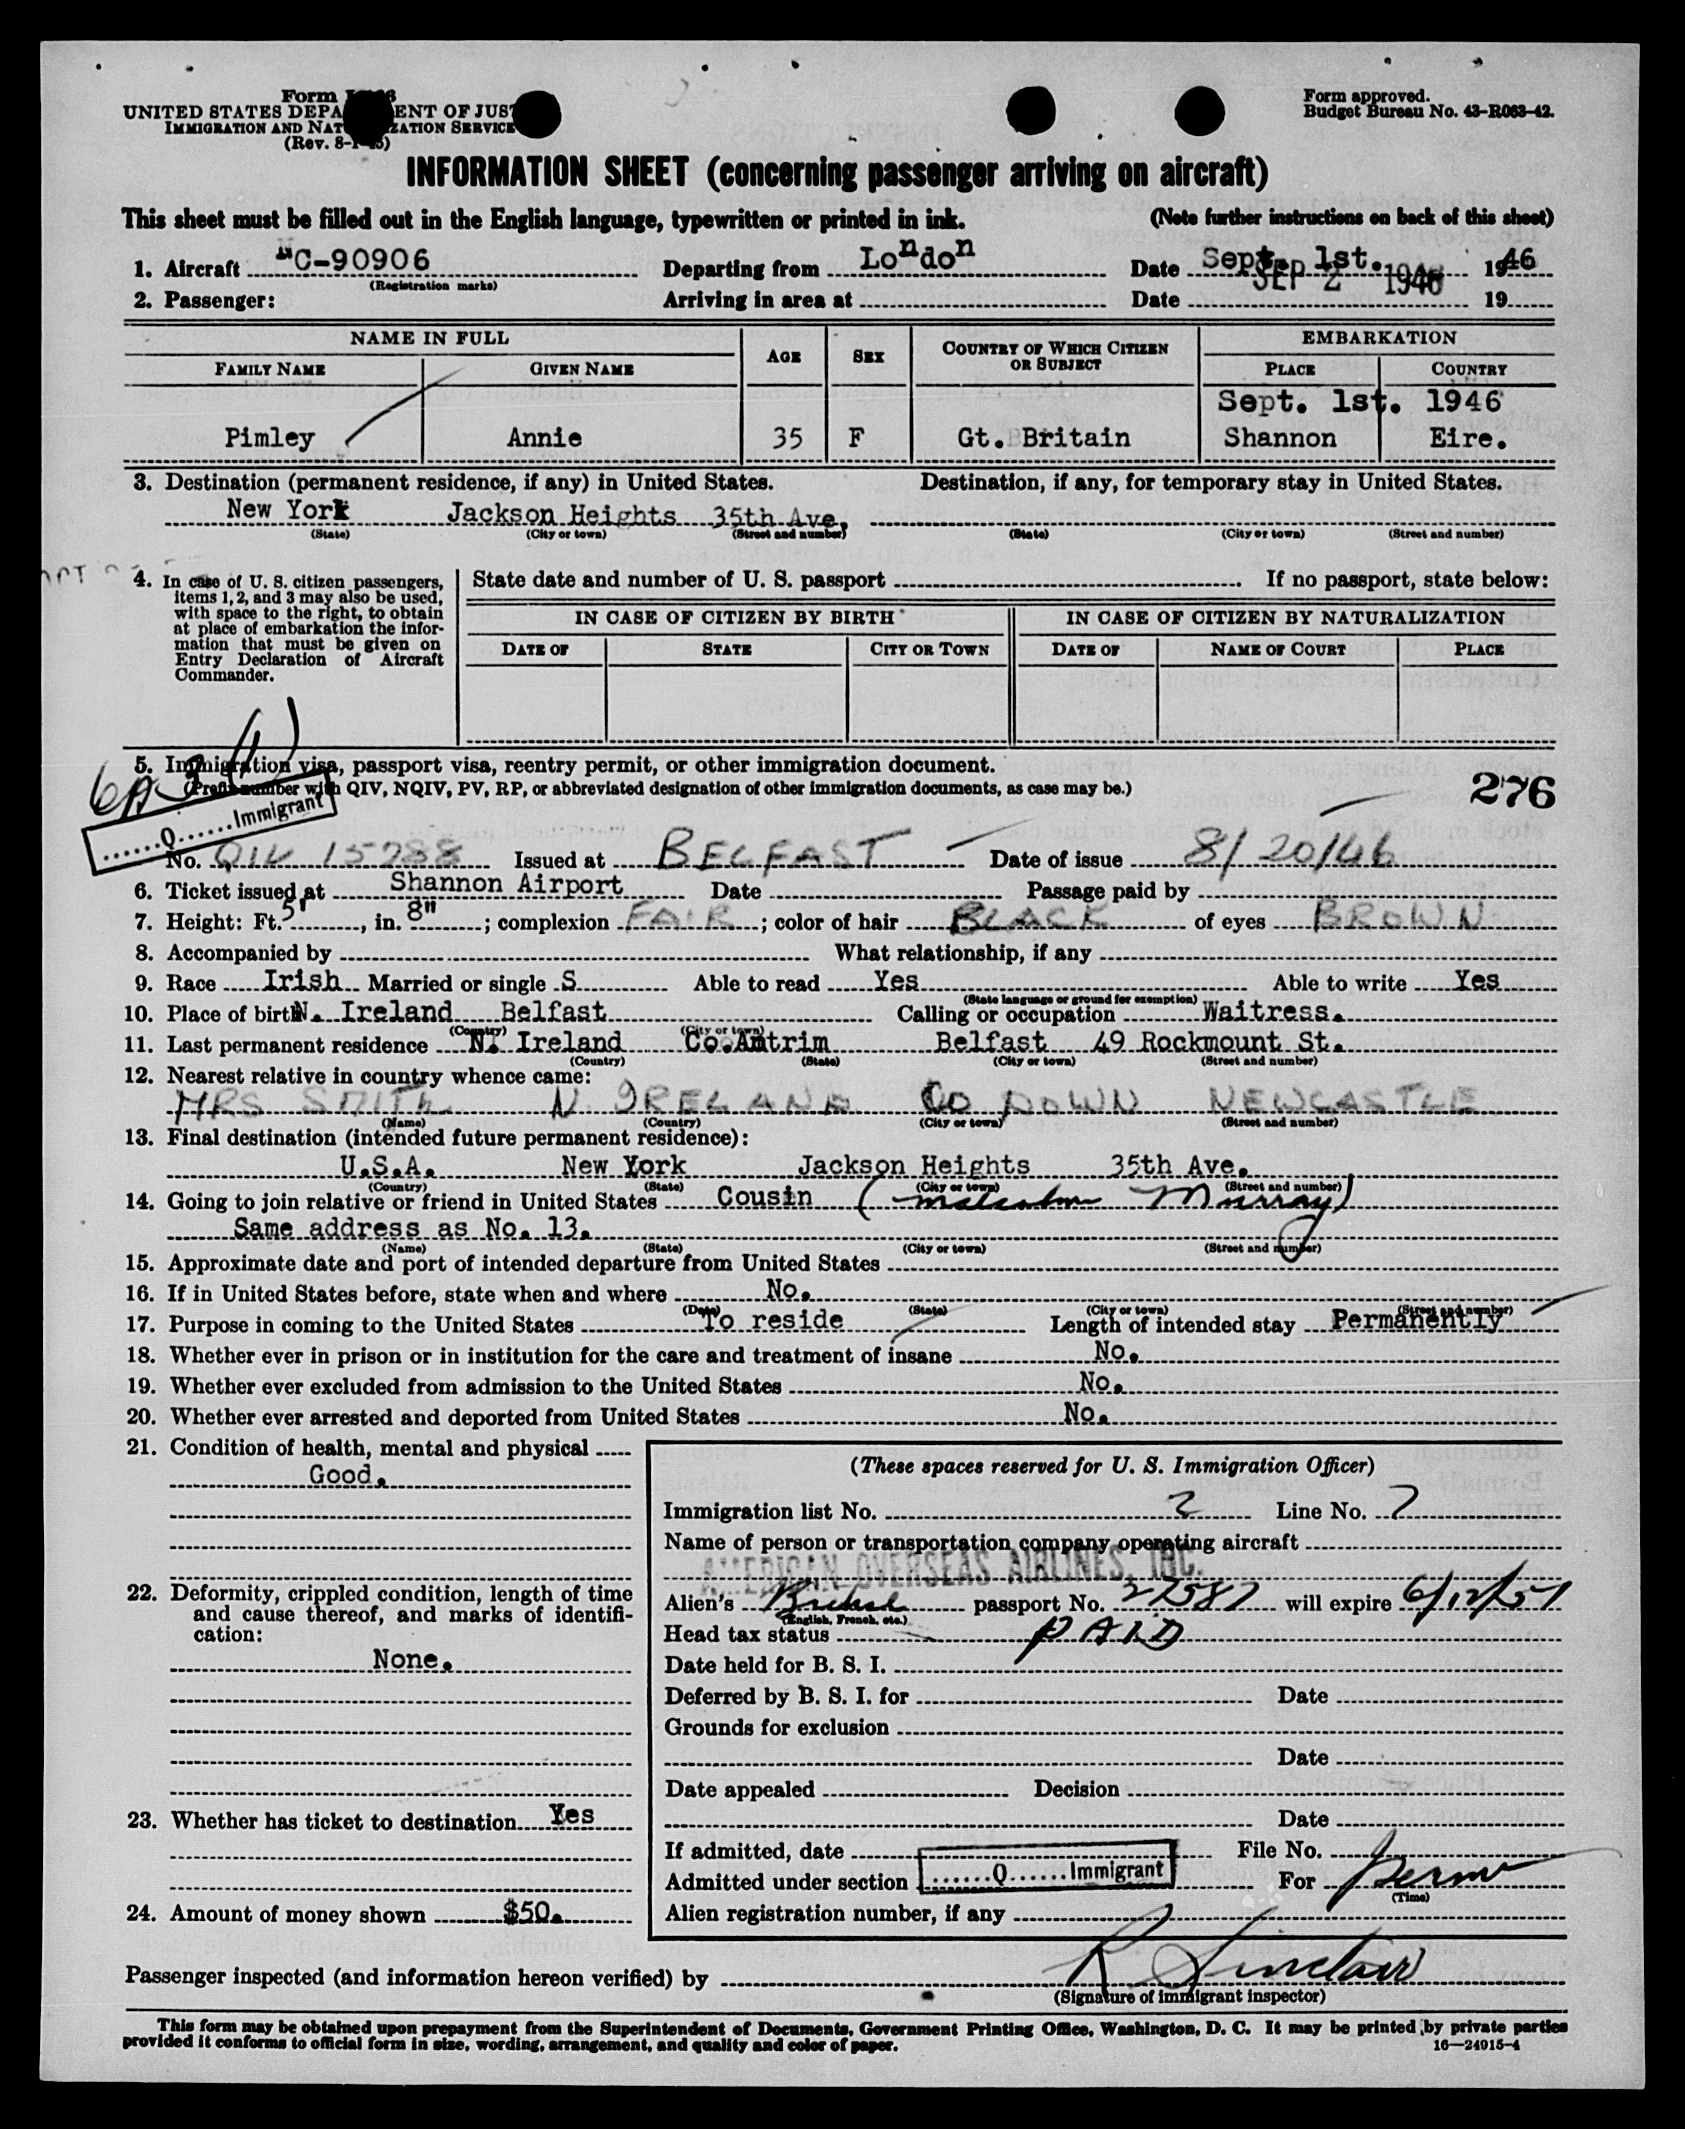 Form I- 6
UNITED STATES DEPA ENT OF JUST
IMMIGRATION AND NAT ZATION SERVICE
(Rev. 8-1-45)
Form approved.
Budget Bureau No. 43-R063-42.
INFORMATION SHEET (concerning passenger arriving on aircraft)
This sheet must be filled out in the English language, typewritten or printed in ink. (Note further instructions on back of this sheet)
1. Aircraft NC-90906 Departing from London Date Sept. 1st. 1946
(Registration marks)
2. Passenger: Arriving in area at Date SEP 2 1946 19
NAME IN FULL AGE SEX COUNTRY OF WHICH CITIZEN OR SUBJECT EMBARKATION
FAMILY NAME GIVEN NAME PLACE COUNTRY
Sept. 1st. 1946
Pimley Annie 35 F Gt. Britain Shannon Eire.
3. Destination (permanent residence, if any) in United States. Destination, if any, for temporary stay in United States.
New York Jackson Heights 35th Ave,
(State) (City or town) (Street and number) (State) (City or town) (Street and number)
4. In case of U. S. citizen passengers, items 1, 2, and 3 may also be used, with space to the right, to obtain at place of embarkation the information that must be given on Entry Declaration of Aircraft Commander.
State date and number of U. S. passport If no passport, state below:
IN CASE OF CITIZEN BY BIRTH IN CASE OF CITIZEN BY NATURALIZATION
DATE OF STATE CITY OR TOWN DATE OF NAME OF COURT PLACE
5. Immigration visa, passport visa, reentry permit, or other immigration document.
(Prefix number with QIV, NQIV, PV, RP, or abbreviated designation of other immigration documents, as case may be.)
276
......Q......Immigrant
No. QIV 15788 Issued at BELFAST Date of issue 8/20/46
6. Ticket issued at Shannon Airport Date Passage paid by
7. Height: Ft. 5', in. 8"; complexion FAIR; color of hair BLACK of eyes BROWN
8. Accompanied by What relationship, if any
9. Race Irish Married or single S Able to read Yes Able to write Yes
(State language or ground for exemption)
10. Place of birth N. Ireland Belfast Calling or occupation Waitress.
(Country) (City or town)
11. Last permanent residence N. Ireland Co.Antrim Belfast 49 Rockmount St.
(Country) (State) (City or town) (Street and number)
12. Nearest relative in country whence came:
MRS SMITH N. IRELAND CO DOWN NEWCASTLE
(Name) (Country) (City or town) (Street and number)
13. Final destination (intended future permanent residence):
U.S.A. New York Jackson Heights 35th Ave.
(Country) (State) (City or town) (Street and number)
14. Going to join relative or friend in United States Cousin (Malcolm Murray)
Same address as No. 13.
(Name) (State) (City or town) (Street and number)
15. Approximate date and port of intended departure from United States
16. If in United States before, state when and where No.
(Date) (State) (City or town) (Street and number)
17. Purpose in coming to the United States To reside Length of intended stay Permanently
18. Whether ever in prison or in institution for the care and treatment of insane No.
19. Whether ever excluded from admission to the United States No.
20. Whether ever arrested and deported from United States No.
21. Condition of health, mental and physical
Good.
22. Deformity, crippled condition, length of time and cause thereof, and marks of identification:
None.
23. Whether has ticket to destination Yes
24. Amount of money shown $50.
(These spaces reserved for U. S. Immigration Officer)
Immigration list No. 2 Line No. 7
Name of person or transportation company operating aircraft
AMERICAN OVERSEAS AIRLINES, INC.
Alien's British passport No. 27587 will expire 6/12/51
(English, French, etc.)
Head tax status PAID
Date held for B. S. I.
Deferred by B. S. I. for Date
Grounds for exclusion
Date
Date appealed Decision
Date
If admitted, date File No.
Admitted under section ......Q......Immigrant For Perm
(Time)
Alien registration number, if any
Passenger inspected (and information hereon verified) by R Sinclair
(Signature of immigrant inspector)
This form may be obtained upon prepayment from the Superintendent of Documents, Government Printing Office, Washington, D. C. It may be printed by private parties
provided it conforms to official form in size, wording, arrangement, and quality and color of paper. 16—24915-4